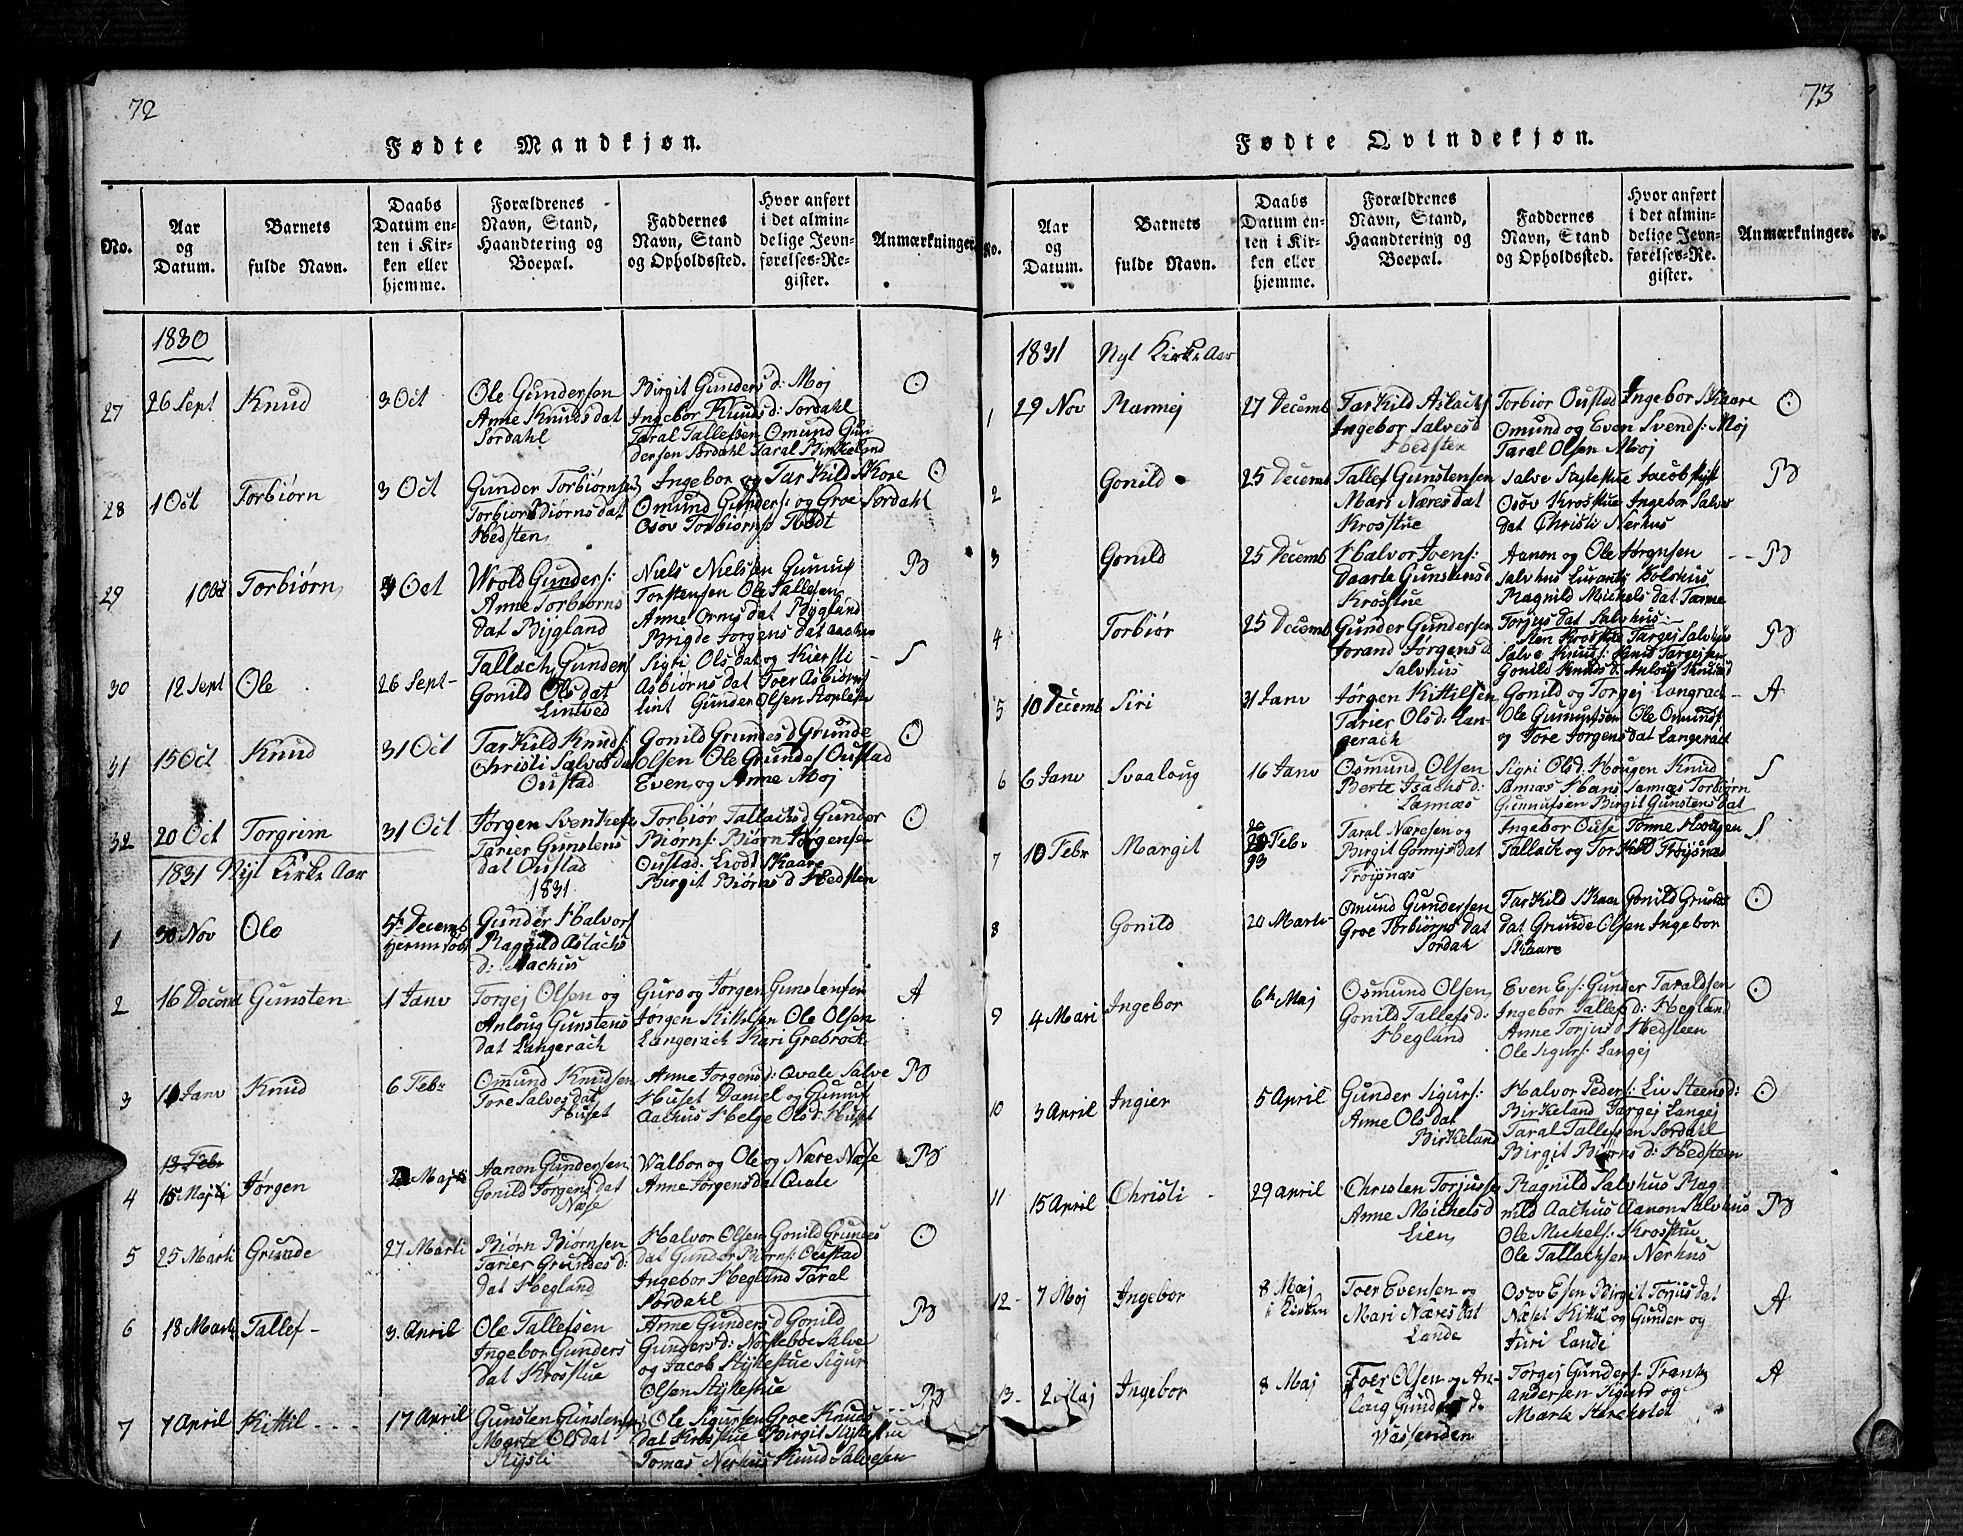 72
Fødte Mandkjøn.
No.
Aar og Datum.
Barnets fulde Navn.
Daabs Datum enten i Kirken eller hjemme.
Forældrenes Navn, Stand, Haandtering og Boepæl.
Faddernes Navn, Stand og Opholdssted.
Hvor anført i det almindelige Jevnførelses-Register.
Anmærkninger.
1830
27 26 Sept Knud 3 Oct
Ole Gundersen
Anne Knudsdat
Sordahl
Birgit Gundersd: Moj
Ingebor Knudsd: Sordahl
Taral Tallefsen Omund Gun
dersen Sordahl Taral Birkeland
O
28 1 Oct Torbiørn 3 Oct
Gunder Torbiørnsen
Torbior Biørnsdat
Hedsten
Ingebor og Tarkild Skore
Omund Gunders: og Groe Sordahl
Osov Torbiørns
O
29 1 Oct Torbiørn 3 Oct
Wrold Gunders:
Anne Torbiørns
dat Bygland
Niels Nielsen Gunuf
Torstensen Ole Tallefsen
Anne Ormsdat Bygland
Brigde Jorgensdat Aachus
B
30 12 Sept Ole 26 Sept
Tallach Gunders
Gonild Olsdat
Lintved
Sigri Olsdat og Kiersti
Asbiørnsdat Toer Asbiørns
Lint Gunder Olsen
S
31 15 Oct Knud 31 Oct
Tarkild Knuds:
Christi Salvesdat
Oustad
Gonild Grundesd Grunde
Olsen Ole Grundes Oustad
Even og Anne Moj
O
32 20 Oct Torgrim 31 Oct
Jørgen Svenkes
Tarier Gunstens
dat Oustad
Torbiør Tallachsd Gunder
Biørns: Biørn Jørgensen
Oustad Liodt Skaare
Birgit Biørnsd Hedsten
O
1831 Nyt Kirke Aar
1831
1 30 Nov Ole 5te Decemb
Gunder Halvors
Ragnild Aslachs
d: Aachus
2 16 Decemb Gunsten 1 Janv
Torgej Olsen og
Anloug Gunstens
dat Langerach
Guro og Jørgen Gunstensen
Jørgen Kittelsen Ole Olsen
Langerach Kari Grebroch
A
3 Janv Knud 6 Febr
Omund Knudsen
Tore Salvesdat
Huset
Anne Jorgensd: Qvale Salve
Huset Daniel og Gunuf
Aachus Helge Olsd: Huset
B
13 Feb.
4 15 Jørgen Maj
Aanon Gundersen
Gonild Jorgensdat
Næse
Walbor og Ole og Nære Næse
Anne Jørgensdat Qvale
B
5 25 Marti Grunde 27 Marti
Biørn Biørnsen
Tarier Grundesd:
dat Hegland
Halvor Olsen Gonild Grundes
dat Gunder Biørns: Oustad
Ingebor Hegland Taral
Sordahl
O
6 18 Marti Tallef 3 April
Ole Tallefsen
Ingebor Gunders
dat Krosstue
Anne Gundersd Gonild
Gundersd: Norsteboe Salve
og Jacob Stykestue Sigur
Olsen Stykestue
B
7 7 April Kittil 17 April
Gunsten Gunstensen
Marte Olsdat
Rysti
Ole Sigursen Groe Knuds
dat Krosstue Birgit Stykestue
Tomas Nerhus Knud Salvesen
B
73
Fødte Qvindekjøn.
No.
Aar og Datum.
Barnets fulde Navn.
Daabs Datum enten i Kirken eller hjemme.
Forældrenes Navn, Stand, Haandtering og Boepæl.
Faddernes Navn, Stand og Opholdssted.
Hvor anført i det almindelige Jevnførelses-Register.
Anmærkninger.
1831 Nyt Kirke Aar
1 29 Nov Rannej 27 Decemb
Tarkild Aslachs
Ingebor Salvesd
Hedsten
Torbiør Oustad Ingebor Skaare
Omund og Even Svends: Moj
Taral Olsen Moj
O
2 Gonild 25 Decemb
Tallef Gunstensen
Mari Næresdat
Krosstue
Salve Stykestue Jacob
Osov Krosstue Ingebor Salves
dat Christi Nerhus
B
3 Gonild 25 Decemb
Halvor Ivens:
Daarte Gunstensd
Krosstue
Aanon og Ole Jørgnsen
Salvhus
Ragnild Mickelsdat Tarme
B
4 Torbiør 25 Decemb
Gunder Gundersen
Jorand Jorgensd
Salvhus
Torjusdat Salvhus
Sten Krosstue Targej Salvhus
Salve Knuds: Knud Targejsen
Gonild Knudsd: Anloug Knudsd
B
5 10 Decemb Siri 31 Janv
Jørgen Kittilsen
Tarier Olsd: Lan-
gerach
Gonild og Torgej Langrach
Ole Gunuldsen Ole Omunds
og Tore Jorgensdat Langerach
A
6 6 Janv Svaaloug 16 Janv
Osmund Olsen
Berte Isachsd:
Samnæs
Sigri Olsd: Hougen Knud
Samnæs Hans Samnæs Torbiørn
Gunnufsen Birgit Gunstensdat
S
7 10 Febr Margit 20 Feb.
Taral Næresen og
Birgit Gonnjsdat
Frøysnæs
Ingebor Ouse Tonne Hougen
Tallach og Torkild Frøysnæs
S
8 Gonild 20 Marti
Omund Gundersen
Groe Torbiørnsdat
Sordahl
Tarkild Skaar Gonild Grundes
dat Grunde Olsen Ingebor
Skaare
O
9 4 Mari Ingebor 6te Maj
Osmund Olsen
Gonild Tallefsd:
Hegland
Even E.s: Gunder Taraldsen
Ingebor Tallefsd: Hegland
Anne Torjusd Hedsteen
Ole Sigurs: Langej
O
10 3 April Ingier 5 April
Gunder Sigurs:
Anne Olsdat
Birkeland
Halvor Peders: Liv Steensd:
Birkeland Targej Langej
Taral Tallefsen Sordahl
Birgit Biørnsd: Hedsteen
O
11 15 April Christi 29 April
Christen Torjussen
Anne Mickelsd
Lien
Ragnild Salvhus Rag
nild Aachus Aanon Salvhus
Ole Mickels: Krosstue
Ole Tallachsen Nerhus
B
12 7 Maj Ingebor 8 Maj
i Kirken
Toer Evensen og
Mari Næresdat
Lande
Osov Birgit Torjusdat
Næset Kittil og Gunder og
Juri Lande
A
13. 2 Maj Ingebor 8 Maj
Toer Olsen og An-
loug Gundersd:
Wassenden
Torgej Gunders: Frantz
Andersen Sigurd og
Marte
A